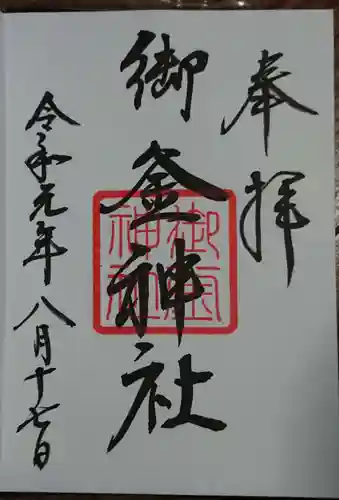 奉拝
御釜神社
令和元年八月十七日
御釜神社